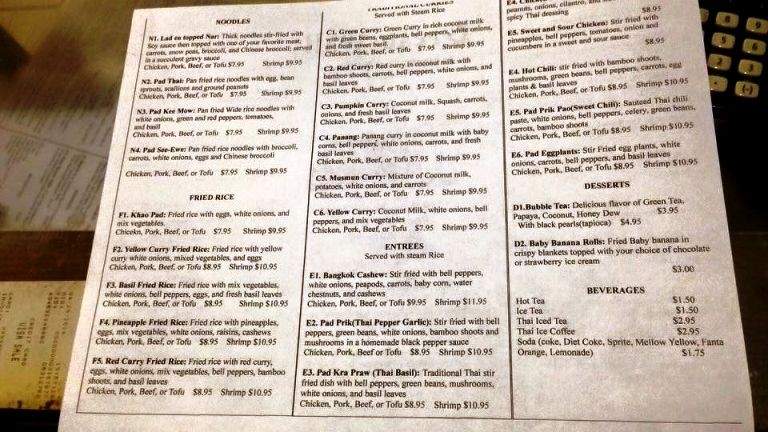 NOODLES
N1. Lad co topped Nar: Thick noodles stir-fried with
Soy sauce then topped with one of your favorite meat,
carrots, snow peas, broccoli, and Chinese broccoli; served
in a succulent gravy sauce
Chicken, Pork, Beef, or Tofu $7.95 Shrimp $9.95
N2. Pad Thai: Pan fried rice noodles with egg, bean
sprouts, scallions and ground peanuts
Chicken, Pork, Beef, or Tofu $7.95 Shrimp $9.95
N3. Pad Kee Mow: Pan fried Wide rice noodles with
white onions, green and red peppers, tomatoes,
and basil
Chicken, Pork, Beef, or Tofu $7.95 Shrimp $9.95
N4. Pad See-Ewe: Pan fried rice noodles with broccoli,
carrots, white onions, eggs and Chinese broccoli
Chicken, Pork, Beef, or Tofu $7.95 Shrimp $9.95
FRIED RICE
F1. Khao Pad: Fried rice with eggs, white onions, and
mix vegetables
Chicken, Pork, Beef, or Tofu $7.95 Shrimp $9.95
F2. Yellow Curry Fried Rice: Fried rice with yellow
curry white onions, mixed vegetables, and eggs
Chicken, Pork, Beef, or Tofu $8.95 Shrimp $10.95
F3. Basil Fried Rice: Fried rice with mix vegetables,
white onions, bell peppers, eggs, and fresh basil leaves
Chicken, Pork, Beef, or Tofu $8.95 Shrimp $10.95
F4. Pineapple Fried Rice: Fried rice with pineapples,
eggs, mix vegetables, white onions, raisins, cashews
Chicken, Pork, Beef, or Tofu $8.95 Shrimp $10.95
F5. Red Curry Fried Rice: Fried rice with red curry,
eggs, white onions, mix vegetables, bell peppers, bamboo
shoots, and basil leaves
Chicken, Pork, Beef, or Tofu $8.95 Shrimp $10.95
TRADITIONAL CURRIES
Served with Steam Rice
C1. Green Curry: Green Curry in rich coconut milk
with green beans, eggplants, bell peppers, white onions,
and fresh sweet basil.
Chicken, Pork, Beef, or Tofu $7.95 Shrimp $9.95
C2. Red Curry: Red curry in coconut milk with
bamboo shoots, carrots, bell peppers, white onions, and
basil leaves
Chicken, Pork, Beef, or Tofu $7.95 Shrimp $9.95
C3. Pumpkin Curry: Coconut milk, Squash, carrots,
onions, and fresh basil leaves
Chicken, Pork, Beef, or Tofu $7.95 Shrimp $9.95
C4. Panang: Panang curry in coconut milk with baby
corn, bell peppers, white onions, carrots, and fresh
basil leaves
Chicken, Pork, Beef, or Tofu $7.95 Shrimp $9.95
C5. Musmun Curry: Mixture of Coconut milk,
potatoes, white onions, and carrots
Chicken, Pork, Beef, or Tofu $7.95 Shrimp $9.95
C6. Yellow Curry: Coconut Milk, white onions, bell
peppers, and mix vegetables
Chicken, Pork, Beef, or Tofu $7.95 Shrimp $9.95
ENTREES
Served with steam Rice
E1. Bangkok Cashew: Stir fried with bell peppers,
white onions, peapods, carrots, baby corn, water
chestnuts, and cashews
Chicken, Pork, Beef, or Tofu $9.95 Shrimp $11.95
E2. Pad Prik(Thai Pepper Garlic): Stir fried with bell
peppers, green beans, white onions, bamboo shoots and
mushrooms in a homemade black pepper sauce
Chicken, Pork, Beef, or Tofu $8.95 Shrimp $10.95
E3. Pad Kra Praw (Thai Basil): Traditional Thai stir
fried dish with bell peppers, green beans, mushrooms,
white onions, and basil leaves
Chicken, Pork, Beef, or Tofu $8.95 Shrimp $10.95
E4.
peanuts, onions, cilantro, and
spicy Thai dressing $8.95
E5. Sweet and Sour Chicken: Stir fried with
pineapples, bell peppers, tomatoes, onion and
cucumbers in a sweet and sour sauce $8.95
E4. Hot Chili: stir fried with bamboo shoots,
mushrooms, green beans, bell peppers, carrots, egg
plants & basil leaves
Chicken, Pork, Beef, or Tofu $8.95 Shrimp $10.95
E5. Pad Prik Pao(Sweet Chili): Sauteed Thai chili
paste, white onions, bell peppers, celery, green beans,
carrots, bamboo shoots
Chicken, Pork, Beef, or Tofu $8.95 Shrimp $10.95
E6. Pad Eggplants: Stir Fried egg plants, white
onions, carrots, bell peppers, and basil leaves
Chicken, Pork, Beef, or Tofu $8.95 Shrimp $10.95
DESSERTS
D1.Bubble Tea: Delicious flavor of Green Tea,
Papaya, Coconut, Honey Dew $3.95
With black pearls(tapioca) $4.95
D2. Baby Banana Rolls: Fried Baby banana in
crispy blankets topped with your choice of chocolate
or strawberry ice cream
$3.00
BEVERAGES
Hot Tea $1.50
Ice Tea $1.50
Thai Iced Tea $2.95
Thai Ice Coffee $2.95
Soda (coke, Diet Coke, Sprite, Mellow Yellow, Fanta
Orange, Lemonade) $1.75